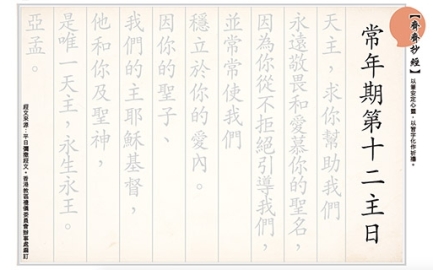 【齊齊抄經】
以筆安定心靈,以寫字化作祈禱。
常年期第十二主日
天主,求你幫助我們
永遠敬畏和愛慕你的聖名,
因為你從不拒絕引導我們,
並常常使我們
穩立於你的愛內。
因你的聖子、
我們的主耶穌基督,
他和你及聖神,
是唯一天主,永生永王。
亞孟。
經文來源:平日彌撒經文,香港教區禮儀委員會辦事處編訂